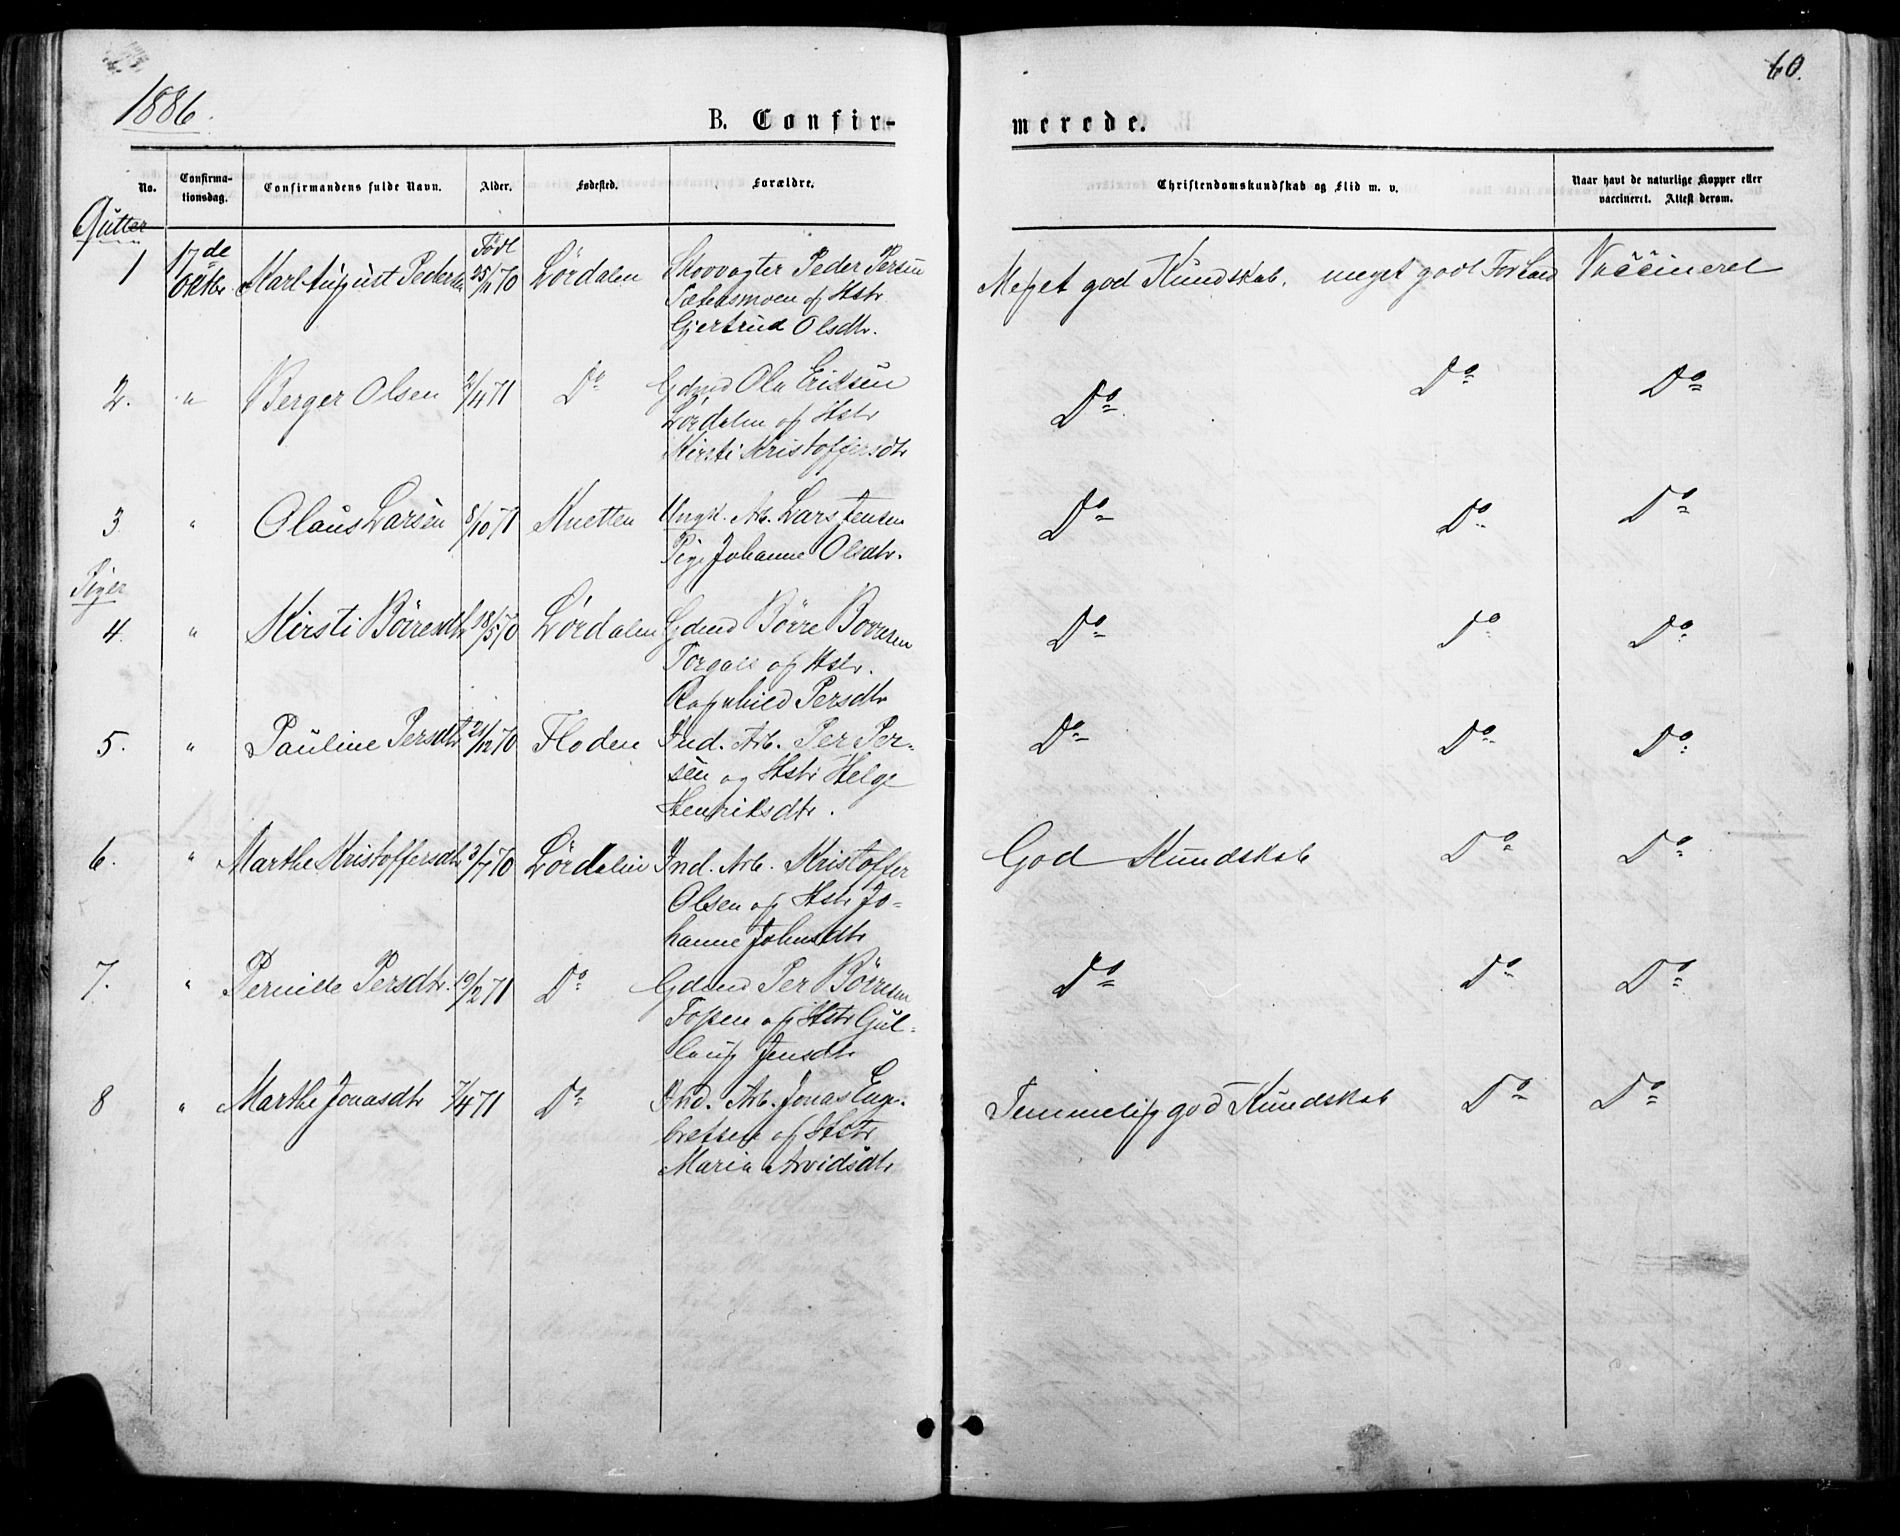 60.
1886.
B. Confir-
merede.
No.
Confirma-
tionsdag.
Confirmandens fulde Navn.
Alder.
Fødested.
Forældre.
Christendomskundskab og Flid m. v.
Naar havt de naturlige Kopper eller
vaccineret. Attest derom.
Gutter
1 17de Oktbr Karl August Pedersen Født 25/11 70 Lördalen Skovvogter Peder Persen
Sætersmoen og Hstr
Gjertrud Olsdtr.
Meget god Kundskab. meget godt Forhold Vaccineret
2. " Berger Olsen 2/4 71 Do Gdmd Ola Eriksen
Lördalen og Hstr
Kirsti Kristoffersdtr
Do Do Do
3 " Olaus Larsen 8/10 71 Knetten Ungk. Arb. Lars Jensen
Pige Johanne Olsdtr.
Do Do Do
Piger
4. " Kirsti Börresdtr 18/5 70 Lördalen Gdmd Börre Börresen
og Hstr.
Ragnhild Persdtr
Do Do Do
5. " Pauline Persdtr 21/12 70 Floden Ind. Arb. Per Per-
sen og Hstr Helge
Henriksdtr.
Do Do Do
6. " Marthe Kristoffersdtr 3/7 70 Lördalen Ind. Arb. Kristoffer
Olsen og Hstr Jo-
hanne Johnsdtr
God Kundskab Do Do
7. " Pernille Persdtr. 19/2 71 Do Gdmd Per Börresen
Fossen og Hstr Gul-
laug Jensdtr
Do Do Do
8 " Marthe Jonasdtr 7/4 71 Do Ind. Arb. Jonas Eng-
bretsen og Hstr
Maria Arvidsdtr
Temmelig god Kundskab Do Do